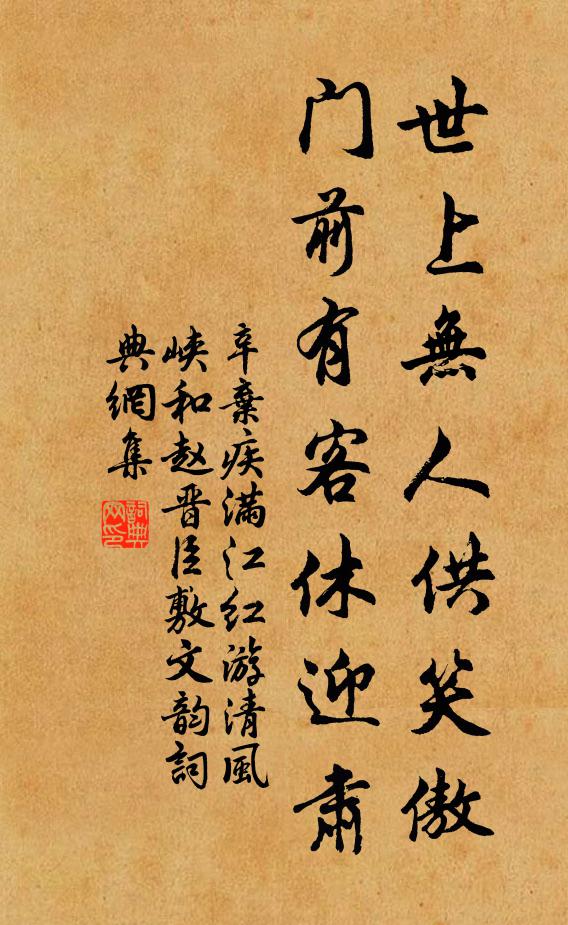 世上無人供笑傲
门前有客休迎肃
辛棄疾满江红游清風
峡和赵晋臣敷文韵詞
典網集
詞典
网印